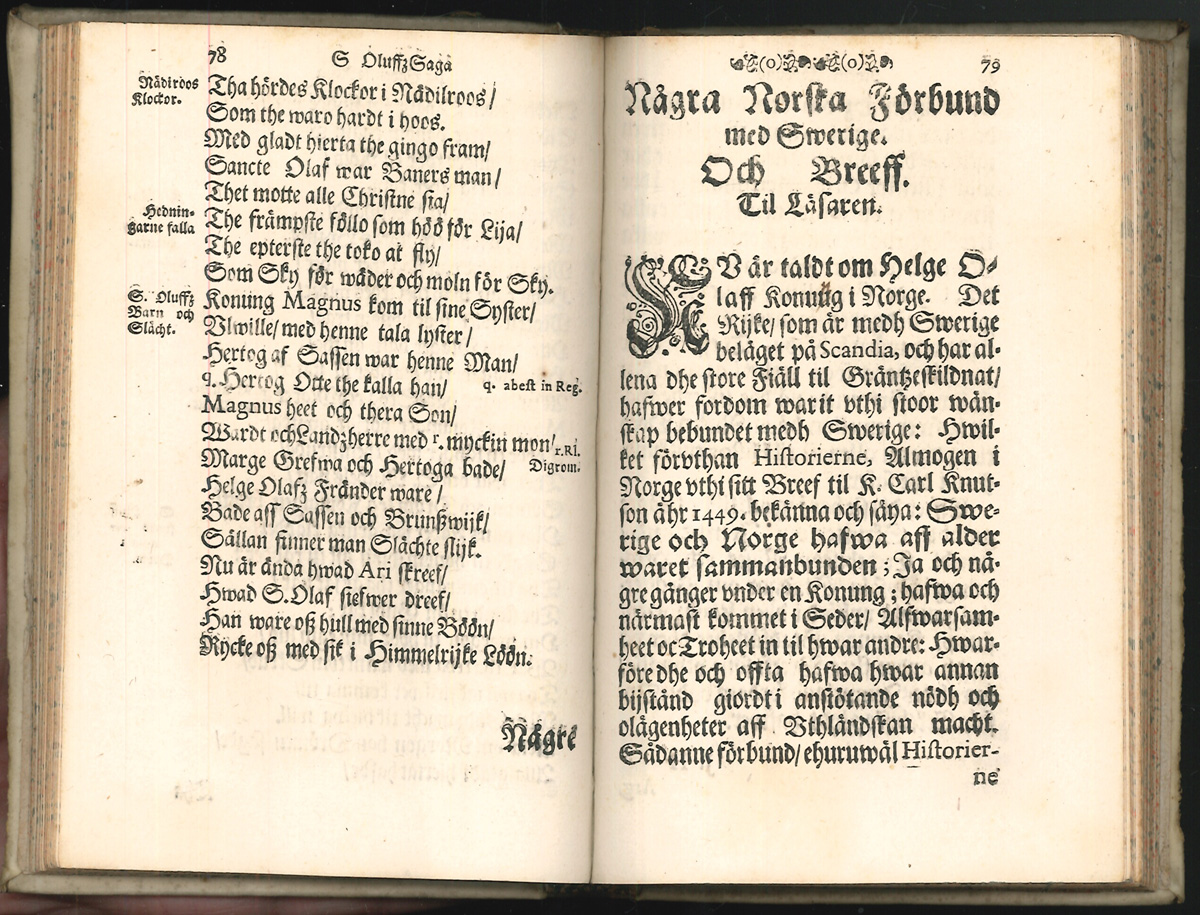 78
S OluffzSaga
Nädiroos
Klockor.
Tha hördes Klockor i Nädilroos/
Som the waro hardt i hoos.
Med gladt hierta the gingo fram/
Sancte Olaf war Baners man/
Thet motte alle Christne sia/
Hednin-
garne falla
The främpste föllo som höö för Lija/
The epterste the toko at fly/
Som Sky för wäder och moln för Sky.
S. Oluffz
Barn och
Slächt.
Konung Magnus kom til sine Syster/
Vlwille/ med henne tala lyster/
Hertog af Sassen war henne Man/
q. Hertog Otte the kalla han/
q. abest in Reg.
Magnus heet och thera Son/
Wardt och Landzherre med r. myckin mon/
r. Rl.
Digrom.
Marge Grefwa och Hertoga bade/
Helge Olafz Fränder ware/
Bade aff Sassen och Brunßwijk/
Sällan finner man Slächte slijk.
Nu är ända hwad Ari skreef/
Hwad S. Olaf sielwer dreef/
Han ware oß hull med sinne Böön/
Rycke oß med sik i Himmelrijke Löön.
Någre
(o) (o)
79
Några Norska Förbund
med Swerige.
Och Breeff.
Til Läsaren.
NV är taldt om Helge O-
laff Konung i Norge. Det
Rijke/ som är medh Swerige
beläget på Scandia, och har al-
lena dhe store Fiäll til Gräntzeskildnat/
hafwer fordom warit vthi stoor wän-
skap bebundet medh Swerige: Hwil-
ket förvthan Historierne, Almogen i
Norge vthi sitt Breef til K. Carl Knut-
son åhr 1449. bekänna och säya: Swe-
rige och Norge hafwa aff alder
waret sammanbunden; Ja och nå-
gre gånger vnder en Konung; hafwa och
närmast kommet i Seder/ Alfwarsam-
heet oc Troheet in til hwar andre: Hwar-
före dhe och offta hafwa hwar annan
bijstånd giordt i anstötande nödh och
olägenheter aff Vthländskan macht.
Sådanne förbund/ ehuruwäl Historier-
ne